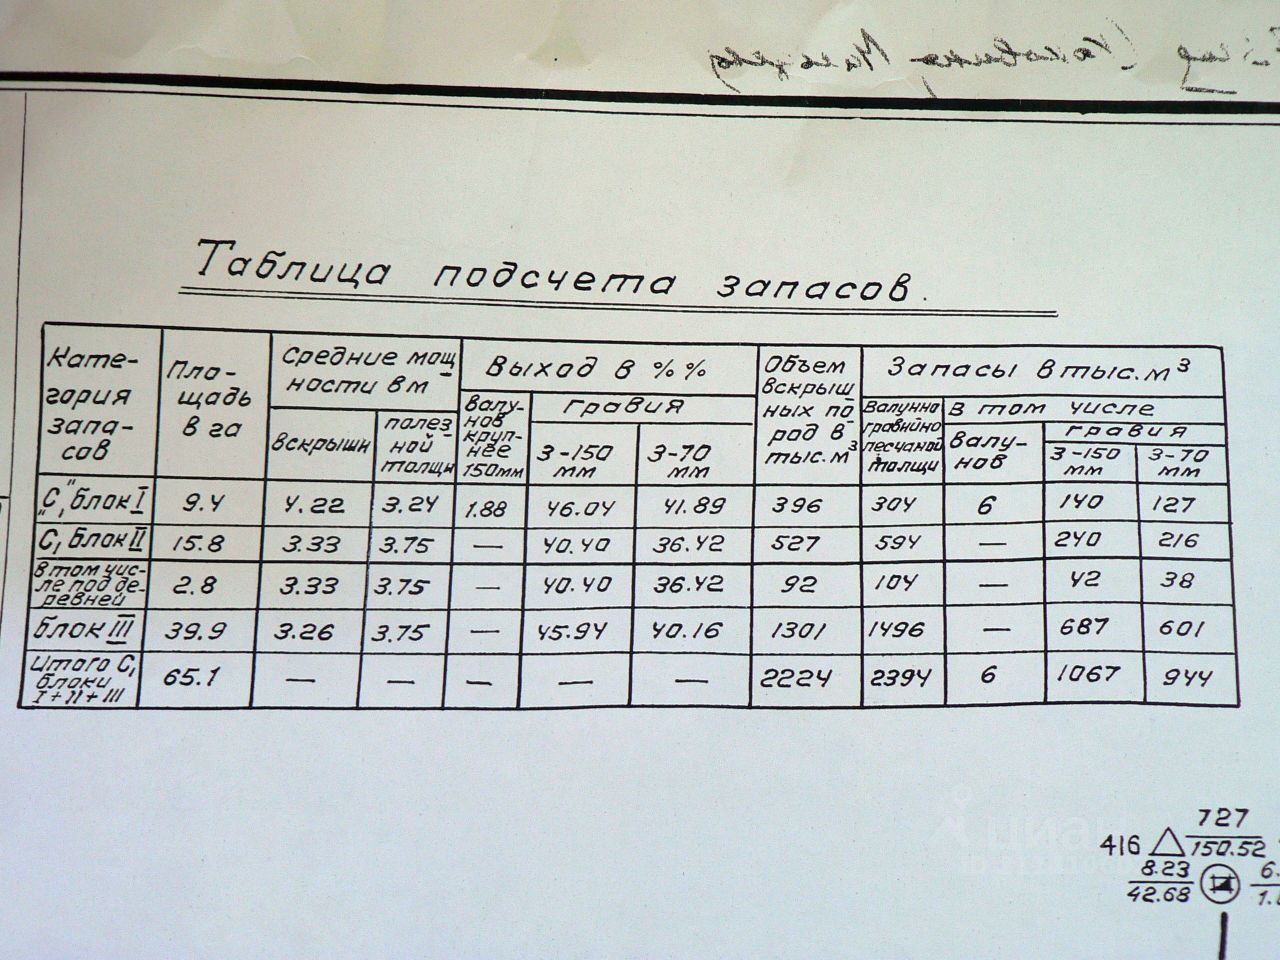 Таблица подсчета запасов.
Кате-
гория
запа-
сов
Пло-
щадь
в га
Средние мощ-
ности в м
вскрыши
полез-
ной
толщи
Выход в %%
валу-
нов
круп-
нее
150мм
гравия
3-150
мм
3-70
мм
Объем
вскрыш-
ных по-
род в
тыс.м³
Запасы в тыс.м³
Валунно
гравийно
песчаной
толщи
в том числе
валу-
нов
гравия
3-150
мм
3-70
мм
"C₁" блок I 9.4 4.22 3.24 1.88 46.04 41.89 396 304 6 140 127
C₁ блок II 15.8 3.33 3.75 — 40.40 36.42 527 594 — 240 216
в том чис-
ле под де-
ревней 2.8 3.33 3.75 — 40.40 36.42 92 104 — 42 38
блок III 39.9 3.26 3.75 — 45.94 40.16 1301 1496 — 687 601
Итого C₁
блоки
I+II+III 65.1 — — — — — 2224 2394 6 1067 944
727
416 150.52
8.23
42.68
6.
1.
циан